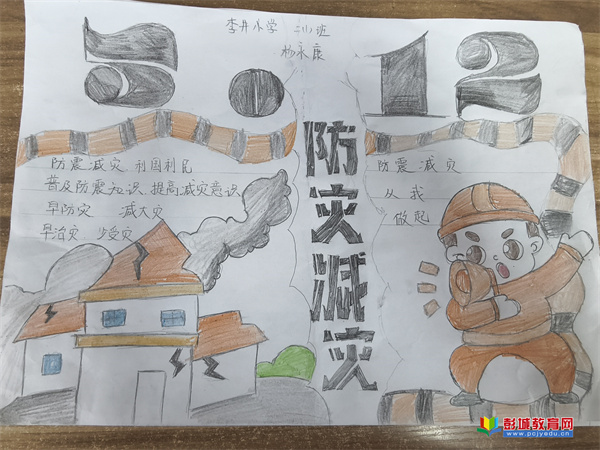 李井小学 二(1)班
杨永康
5.12
防灾减灾
防震减灾 利国利民
普及防震知识 提高减灾意识
早防灾 减大灾
早治灾 少受灾
防震减灾
从我
做起
彭城教育网
www.pcjyedu.cn